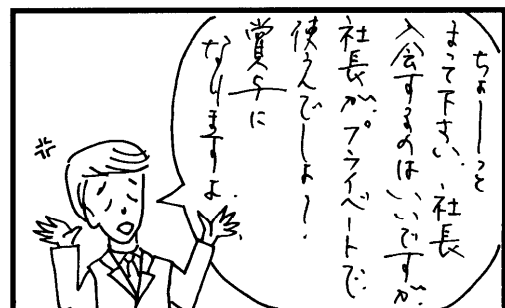 ちょーっと
まって下さい、社長
入会するのはいいですが、
社長が、プライベートで、
使うんでしょー！
賞与に
なりますよ、